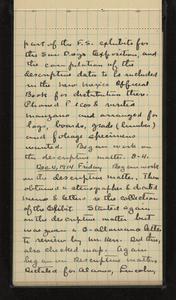 part of the F.S. exhibits for
the San Diego Exposition, and
the compilation of the
descriptive data to be included
in the New Mexico Official
Book for distribution there.
Phoned & visited
manzano and arranged for
logs, boards, grade (lumber)
and foliage specimens
wanted. Began work on
the descriptive matter. 8-4.
Dec 4, 1914 Friday. Began work
on the descriptive matter. Then
obtained a stenographer & dictated
memo & letters to the collection
of the Exhibit. Started again
on the descriptive matter but
was given a D-
to review by Mr. Kerr. Did this,
also checked map. Again
began on descriptive matter.
Dictated for Alamo, Lincoln,